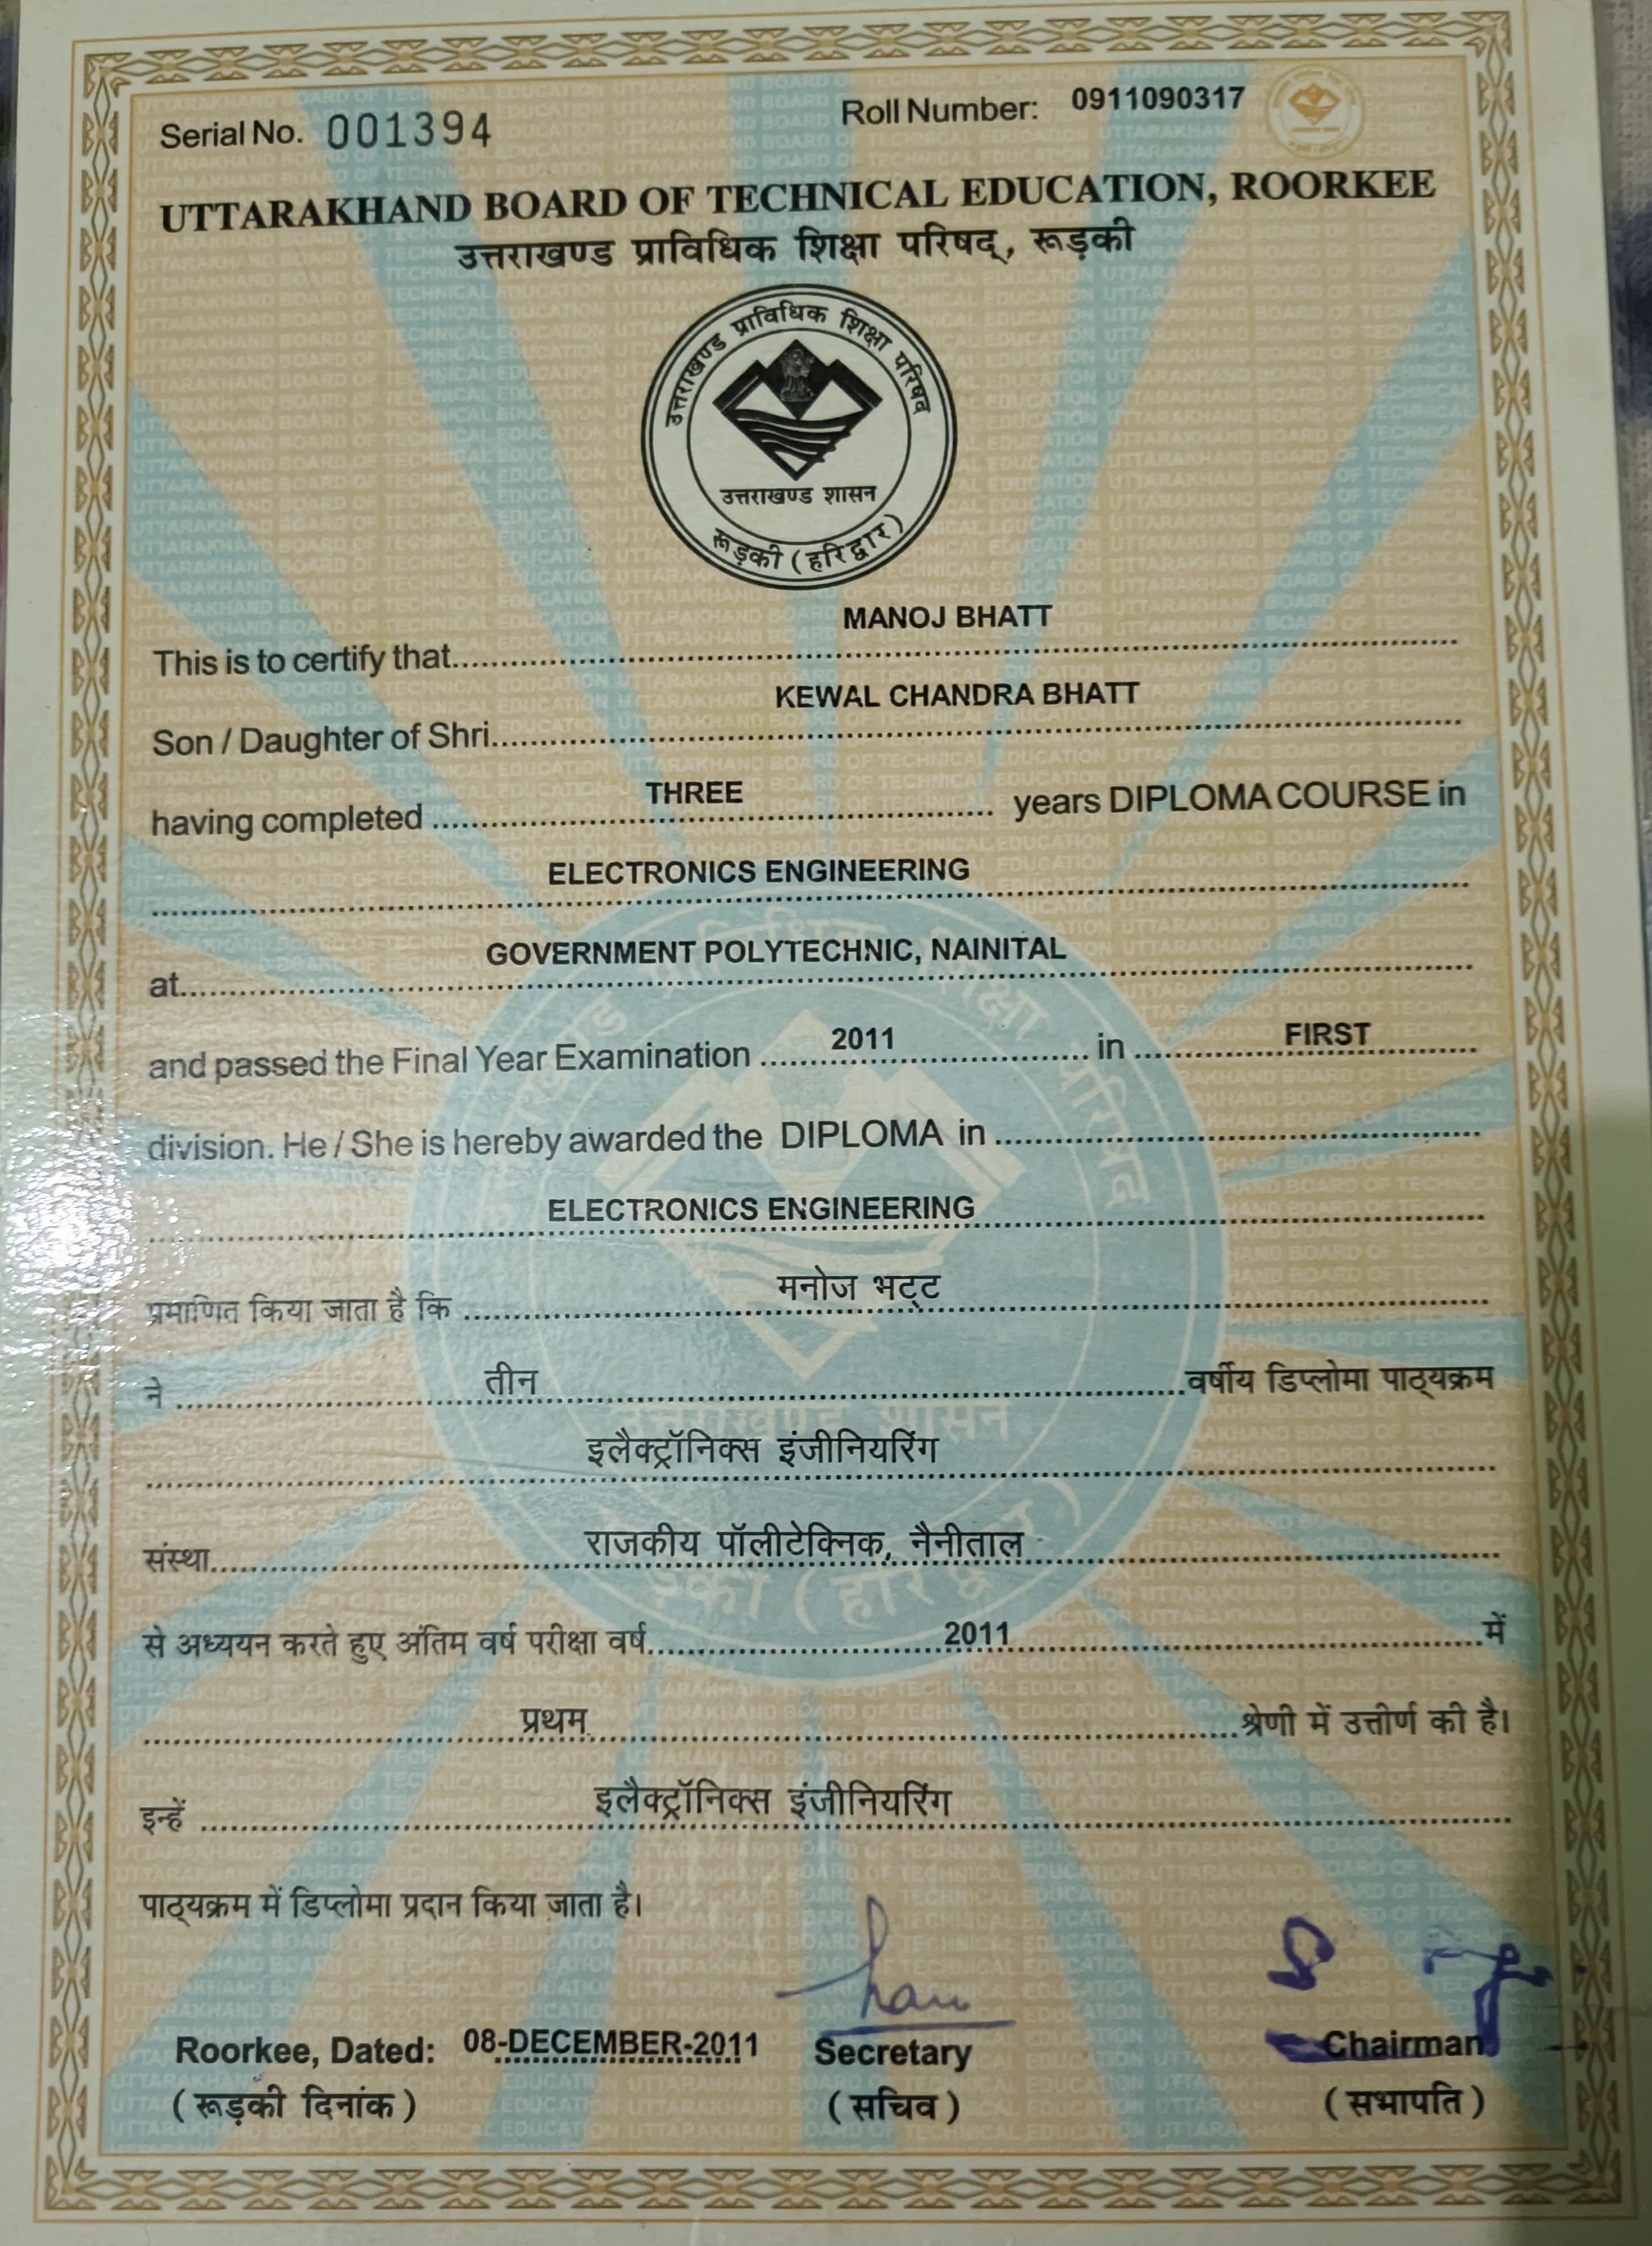 Serial No. 001394
Roll Number: 0911090317
UTTARAKHAND BOARD OF TECHNICAL EDUCATION, ROORKEE
उत्तराखण्ड प्राविधिक शिक्षा परिषद्, रूड़की
उत्तराखण्ड प्राविधिक शिक्षा परिषद
उत्तराखण्ड शासन
रूड़की (हरिद्वार)
This is to certify that MANOJ BHATT
Son / Daughter of Shri KEWAL CHANDRA BHATT
having completed THREE years DIPLOMA COURSE in
ELECTRONICS ENGINEERING
at GOVERNMENT POLYTECHNIC, NAINITAL
and passed the Final Year Examination 2011 in FIRST
division. He / She is hereby awarded the DIPLOMA in
ELECTRONICS ENGINEERING
प्रमाणित किया जाता है कि मनोज भट्ट
ने तीन वर्षीय डिप्लोमा पाठ्यक्रम
इलैक्ट्रॉनिक्स इंजीनियरिंग
संस्था राजकीय पॉलीटेक्निक, नैनीताल
से अध्ययन करते हुए अंतिम वर्ष परीक्षा वर्ष 2011 में
प्रथम श्रेणी में उत्तीर्ण की है।
इन्हें इलैक्ट्रॉनिक्स इंजीनियरिंग
पाठ्यक्रम में डिप्लोमा प्रदान किया जाता है।
Roorkee, Dated: 08-DECEMBER-2011 Secretary Chairman
(रूड़की दिनांक) (सचिव) (सभापति)